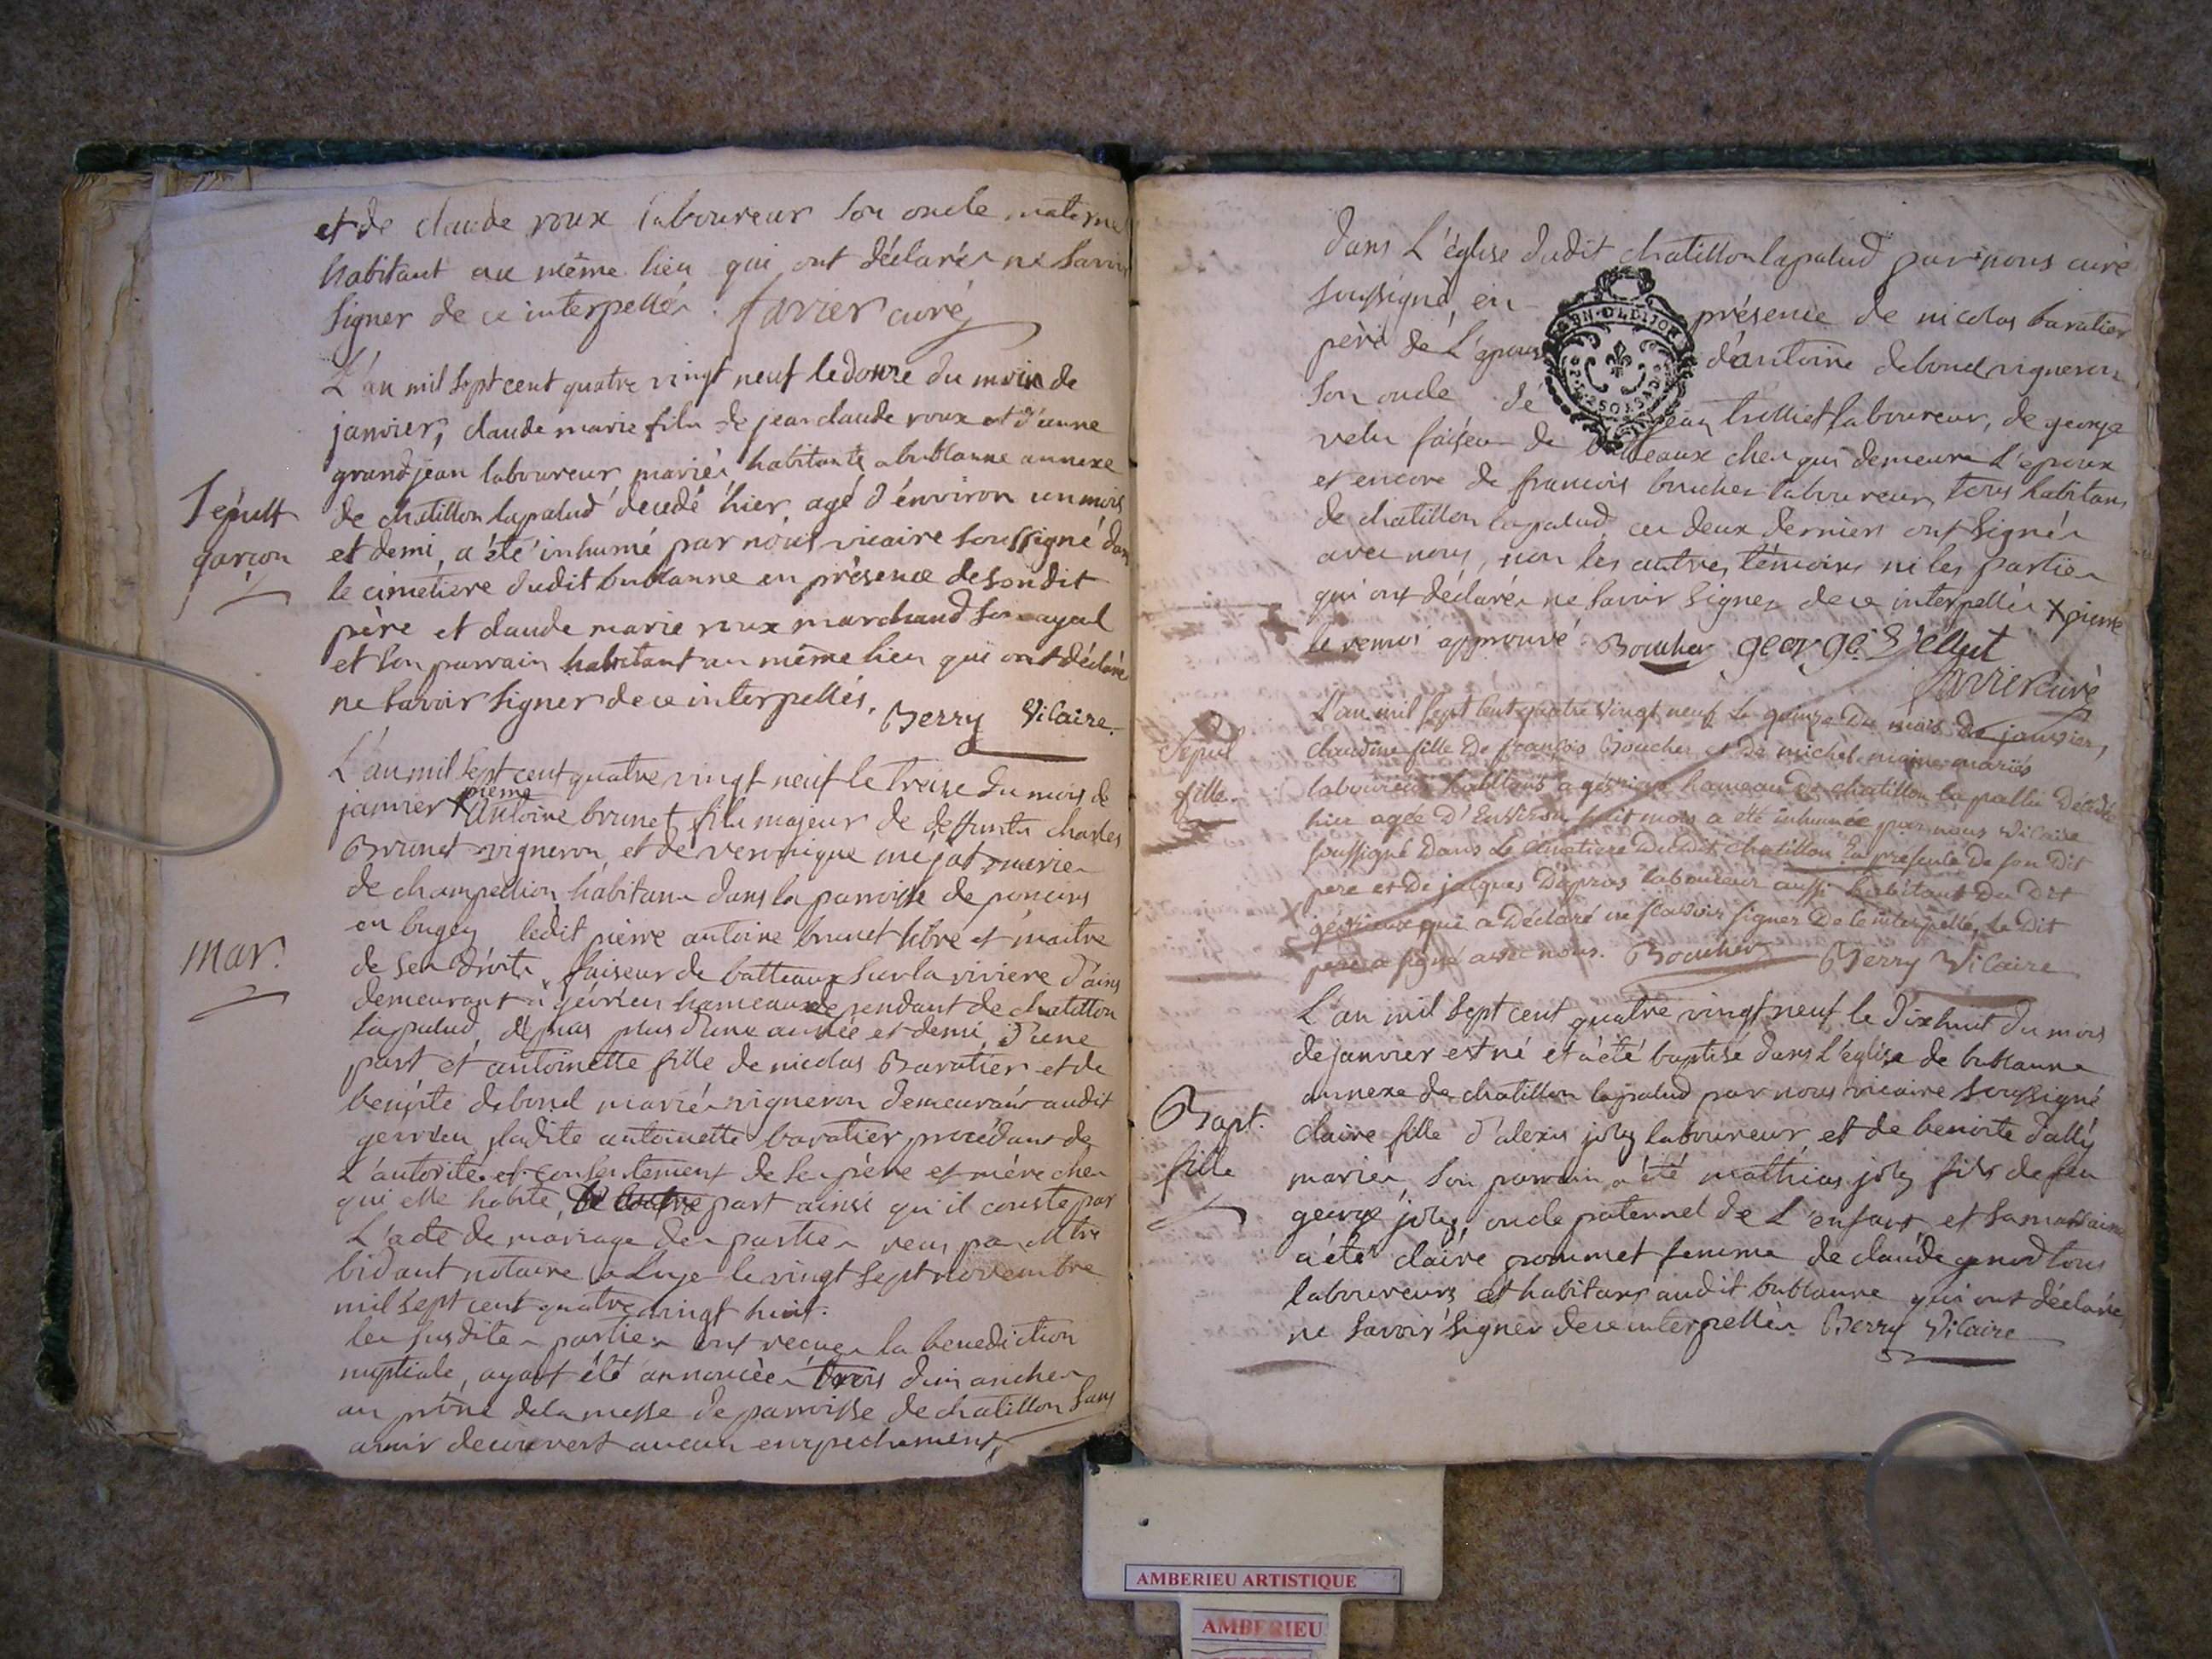 et de claude roux laboureur son oncle maternel
habitant au même lieu qui ont déclarés ne savoir
signer de ce interpellés. favier curé
L'an mil sept cent quatre vingt neuf le douze du mois de
janvier, claude marie fils de jean claude roux et d'anne
grandjean laboureur mariés habitants a bublanne annexe
Sepult
garçon
de chatillon lapalud décédé hier agé d'environ un mois
et demi, a été inhumé par nous vicaire soussigné dans
le cimetiere dudit bublanne en présence de son dit
père et claude marie roux marchand son ayeul
et son parrain habitant au même lieu qui ont déclaré
ne savoir signer de ce interpellés. Berry Vicaire.
L'an mil sept cent quatre vingt neuf le treize du mois de
pierre
janvier x antoine brunet fils majeur de deffunts charles
Brunet vigneron et de veronique mejat mariés
de champeillon habitans dans la parroisse de poncins
en bugey ledit pierre antoine brunet libre et maitre
mar.
de ses droits faiseur de batteaux sur la riviere d'ains
demeurant a gévrieu hameau dependant de chatillon
lapalud, depuis plus d'une année et demi, d'une
part et antoinette fille de nicolas Baratier et de
benoite debonel mariés vigneron demeurans audit
gevrieu ladite antoinette baratier procédant de
L'autorité et consentement de ses père et mère chez
qui elle habite, d'autre part ainsi qu'il conste par
L'acte de mariage des parties reçu par Mtre
bidaut notaire a le vingt sept novembre
mil sept cent quatre vingt huit.
les susdites parties ont reçues la benediction
nuptiale, ayant été annoncées trois dimanches
au prône de la messe de parroisse de chatillon sans
avoir decouvert aucun empechement,
dans L'église dudit chatillon lapalud par nous curé
soussigné, en présence de nicolas baratier
père de L'epouse d'antoine debonel vigneron
son oncle de jean trolliet laboureur, de george
velu faiseur de batteaux chez qui demeure L'epoux
et encore de francois boucher laboureur, tous habitans
de chatillon lapalud ces deux derniers ont signés
avec nous, non les autres témoins ni les parties
qui ont déclarés ne savoir signer de ce interpellés x pierre
le renvoi approuvé. Boucher george
favier curé
L'an mil sept cent quatre vingt neuf le quinze du mois de janvier,
Sepul
fille.
claudine fille de françois Boucher et de michel maire mariés
laboureur habitans a gévrieux hameau de chatillon la pallu décédée
hier agée d'environ huit mois a été inhumée par nous vicaire
soussigné dans le cimetiere dudit chatillon en presence de son dit
pere et de jacques Dupras laboureur aussi habitant du dit
gévrieux qui a déclaré ne sçavoir signer de ce interpellé, le dit
pere a signé avec nous. Boucher Berry Vicaire
L'an mil sept cent quatre vingt neuf le dixhuit du mois
de janvier est né et a été baptisé dans L'église de bublanne
annexe de chatillon lapalud par nous vicaire soussigné
Bapt.
fille
claire fille d'alexis joly laboureur et de benoite dally
mariés, son parrain a été mathias joly fils de feu
george joly, oncle paternel de L'enfant et sa marraine
a été claire grommet femme de claude genod tous
laboureurs et habitans audit bublanne qui ont déclaré
ne savoir signer de ce interpellés Berry Vicaire
AMBERIEU ARTISTIQUE
AMBERIEU